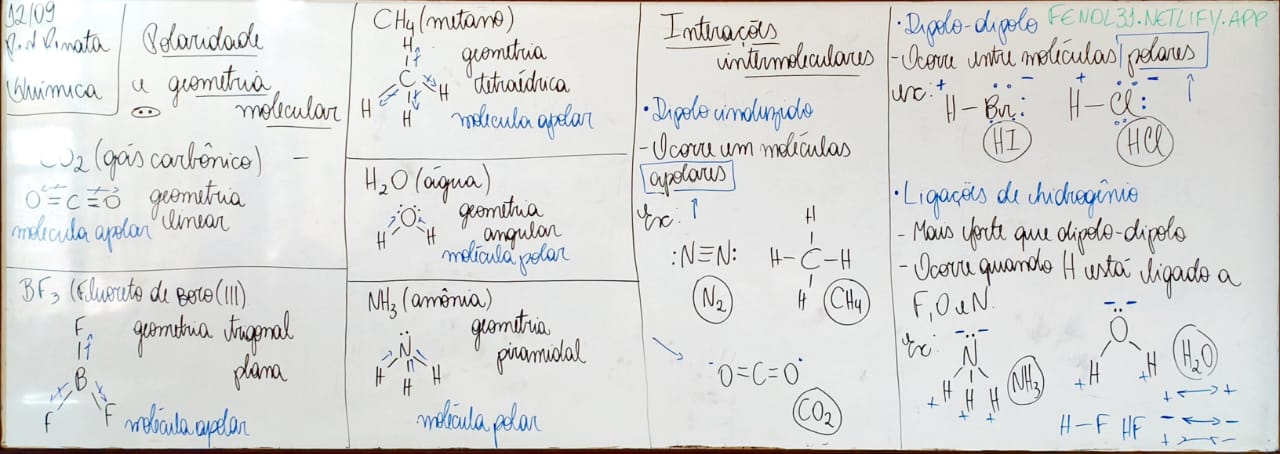 12/09
Química
Polaridade
e geometria
molecular
CO2 (gás carbônico) –
O=C=O geometria
linear
molécula apolar
BF3 (Fluoreto de Boro(III)
F
B
F F
geometria trigonal
plana
molécula apolar
CH4 (metano)
H
C
H H
H
geometria
tetraédrica
molécula apolar
H2O (água)
O
H H
geometria
angular
molécula polar
NH3 (amônia)
N
H H H
geometria
piramidal
molécula polar
Interações
intermoleculares
• Dipolo induzido
- Ocorre em moléculas
apolares
Ex: ↑
:N≡N:
N2
H
H-C-H
H
CH4
O=C=O
CO2
• Dipolo-dipolo FENDL31.NETLIFY.APP
- Ocorre entre moléculas polares
ex: + - + - ↑
H-Br: H-Cl:
HI HCl
• Ligações de hidrogênio
- Mais forte que dipolo-dipolo
- Ocorre quando H está ligado a
F, O e N.
Ex:
- -
N
H H H
+ + +
NH3
- -
O
H H
+ +
H2O
H-F HF
+ ↔ +
- ↔ -
+ ↔ -